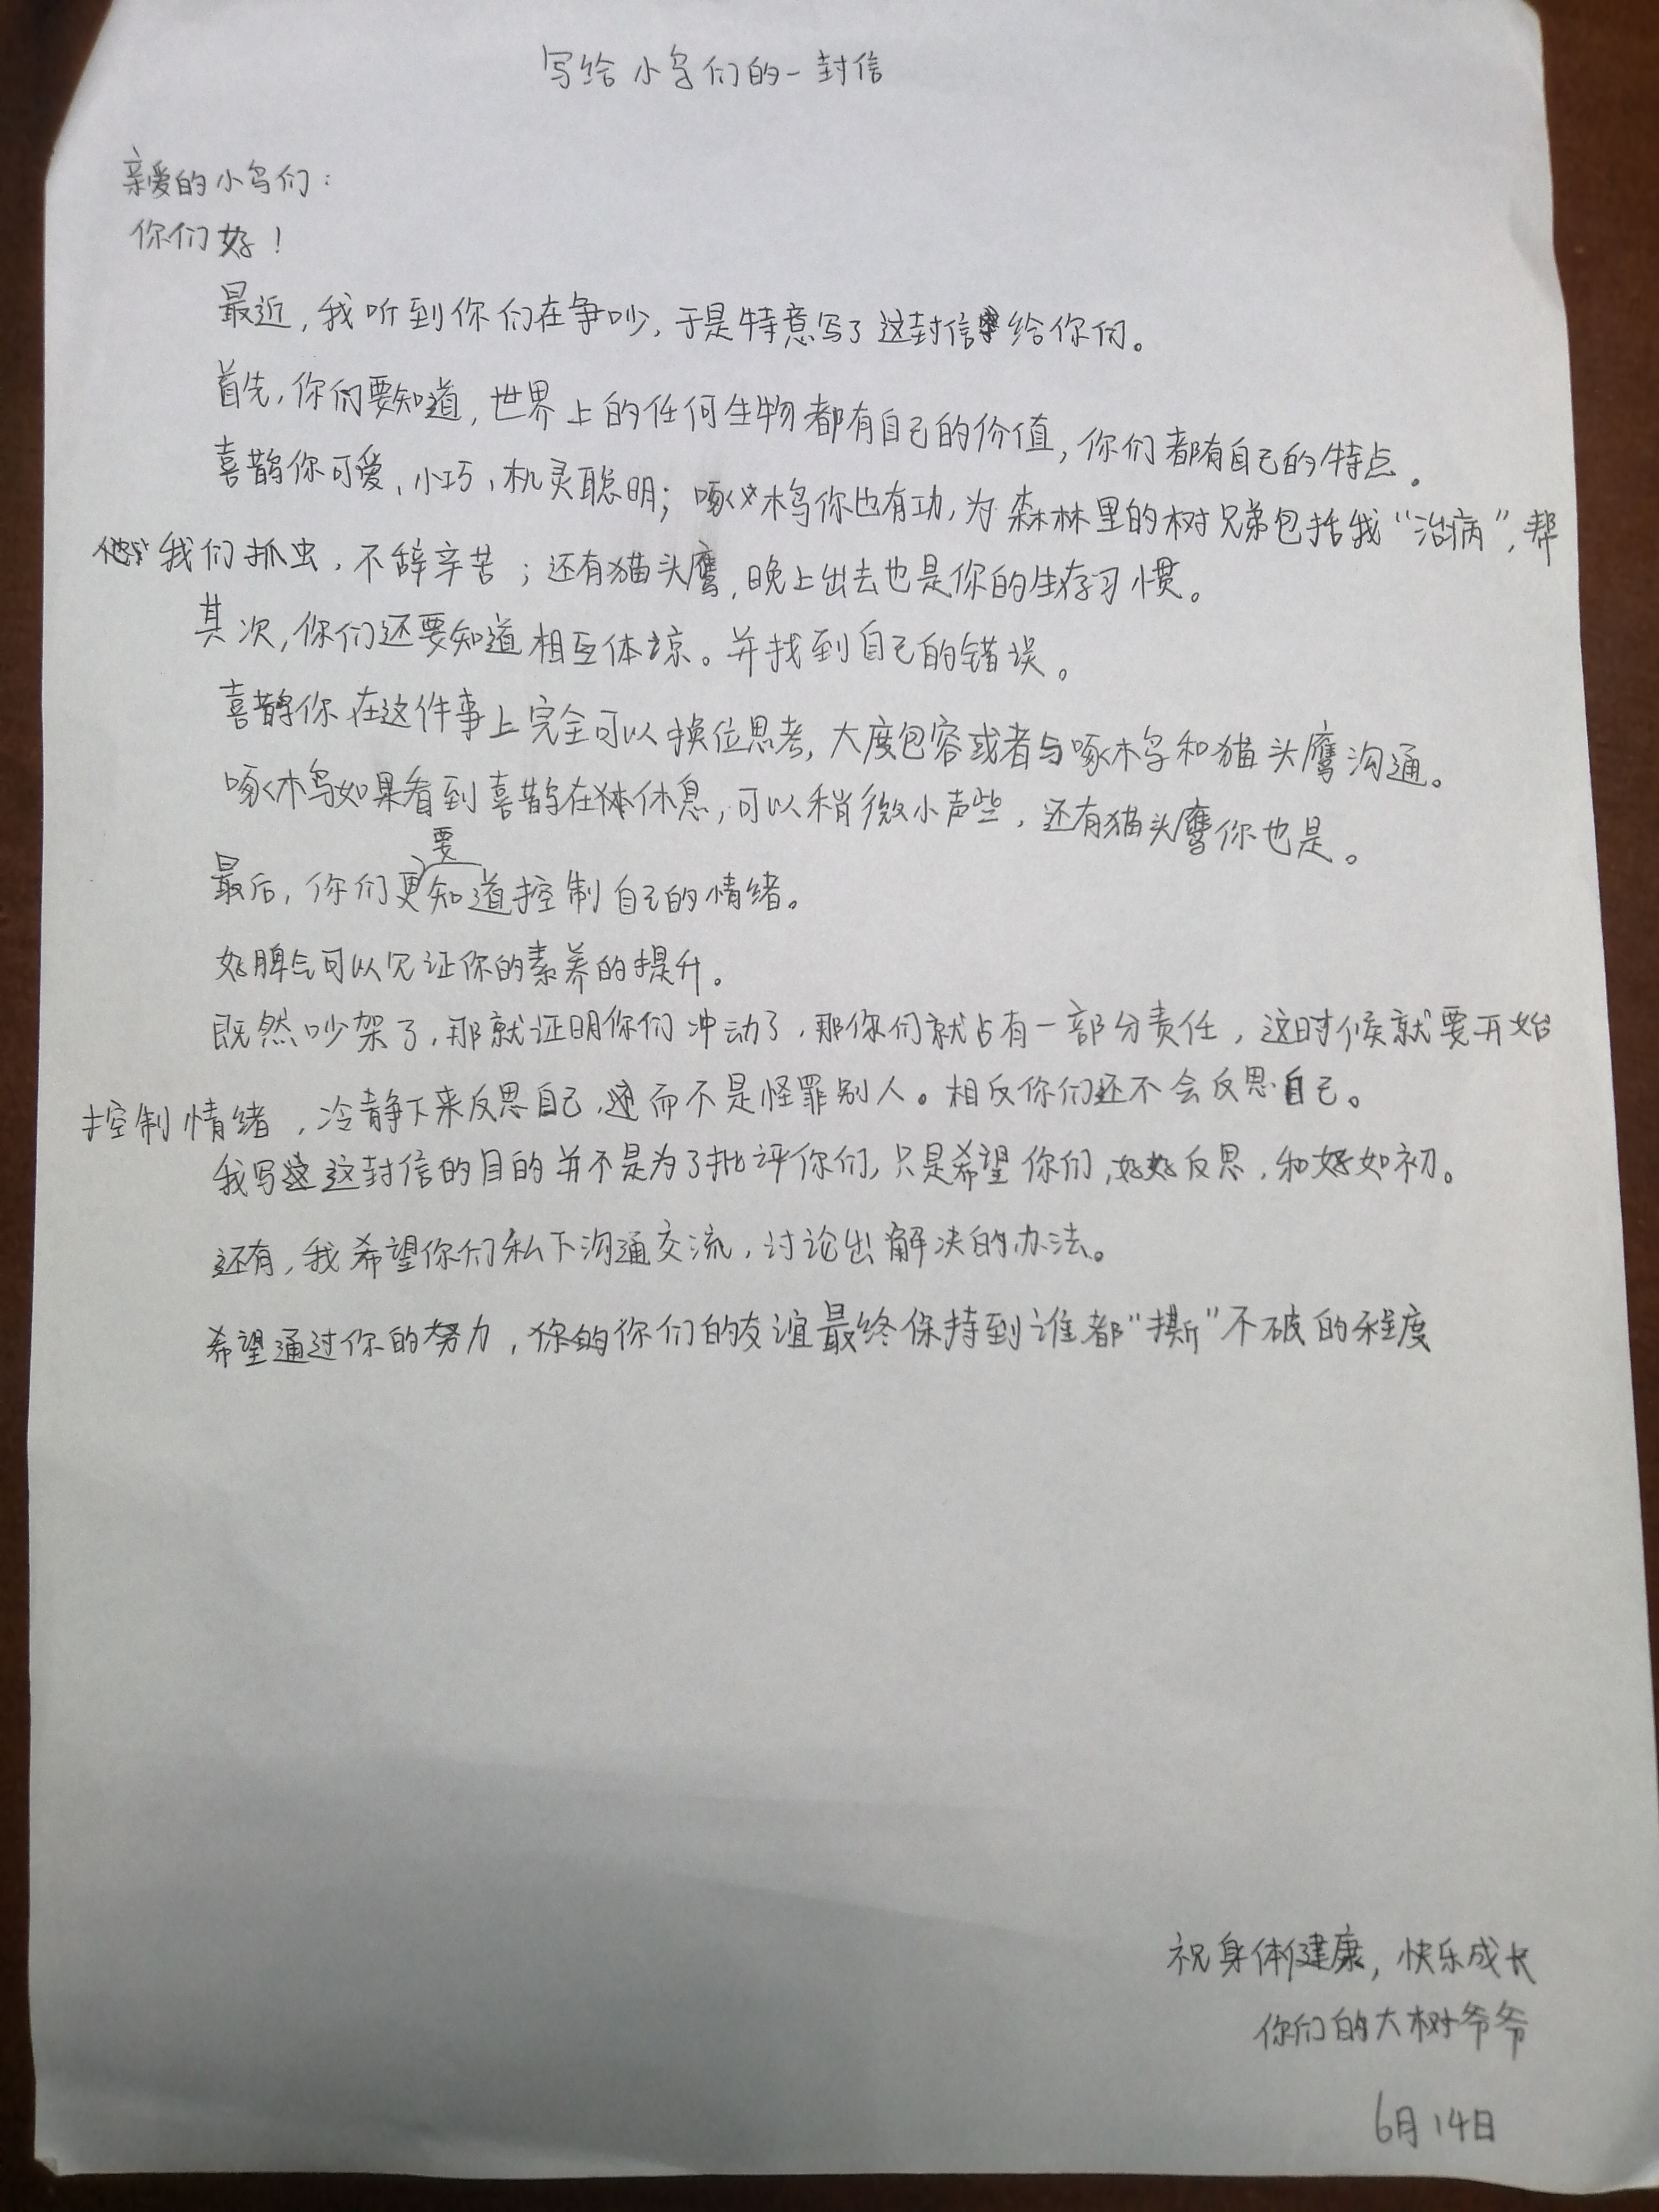 写给小鸟们的一封信
亲爱的小鸟们:
你们好!
最近,我听到你们在争吵,于是特意写了这封信给你们。
首先,你们要知道,世界上的任何生物都有自己的价值,你们都有自己的特点。
喜鹊你可爱、小巧、机灵聪明;啄木鸟你也有功,为森林里的树兄弟包括我“治病”,帮
我们抓虫,不辞辛苦;还有猫头鹰,晚上出去也是你的生存习惯。
其次,你们还要知道相互体谅。并找到自己的错误。
喜鹊你在这件事上完全可以换位思考,大度包容或者与啄木鸟和猫头鹰沟通。
啄木鸟如果看到喜鹊在休息,可以稍微小声些,还有猫头鹰你也是。
最后,你们更要知道控制自己的情绪。
好脾气可以见证你的素养的提升。
既然吵架了,那就证明你们冲动了,那你们就占有一部分责任,这时候就要开始
控制情绪,冷静下来反思自己,而不是怪罪别人。相反你们还不会反思自己。
我写这封信的目的并不是为了批评你们,只是希望你们,好好反思,和好如初。
还有,我希望你们私下沟通交流,讨论出解决的办法。
希望通过你的努力,你们的友谊最终保持到谁都“撕”不破的程度
祝身体健康,快乐成长
你们的大树爷爷
6月14日